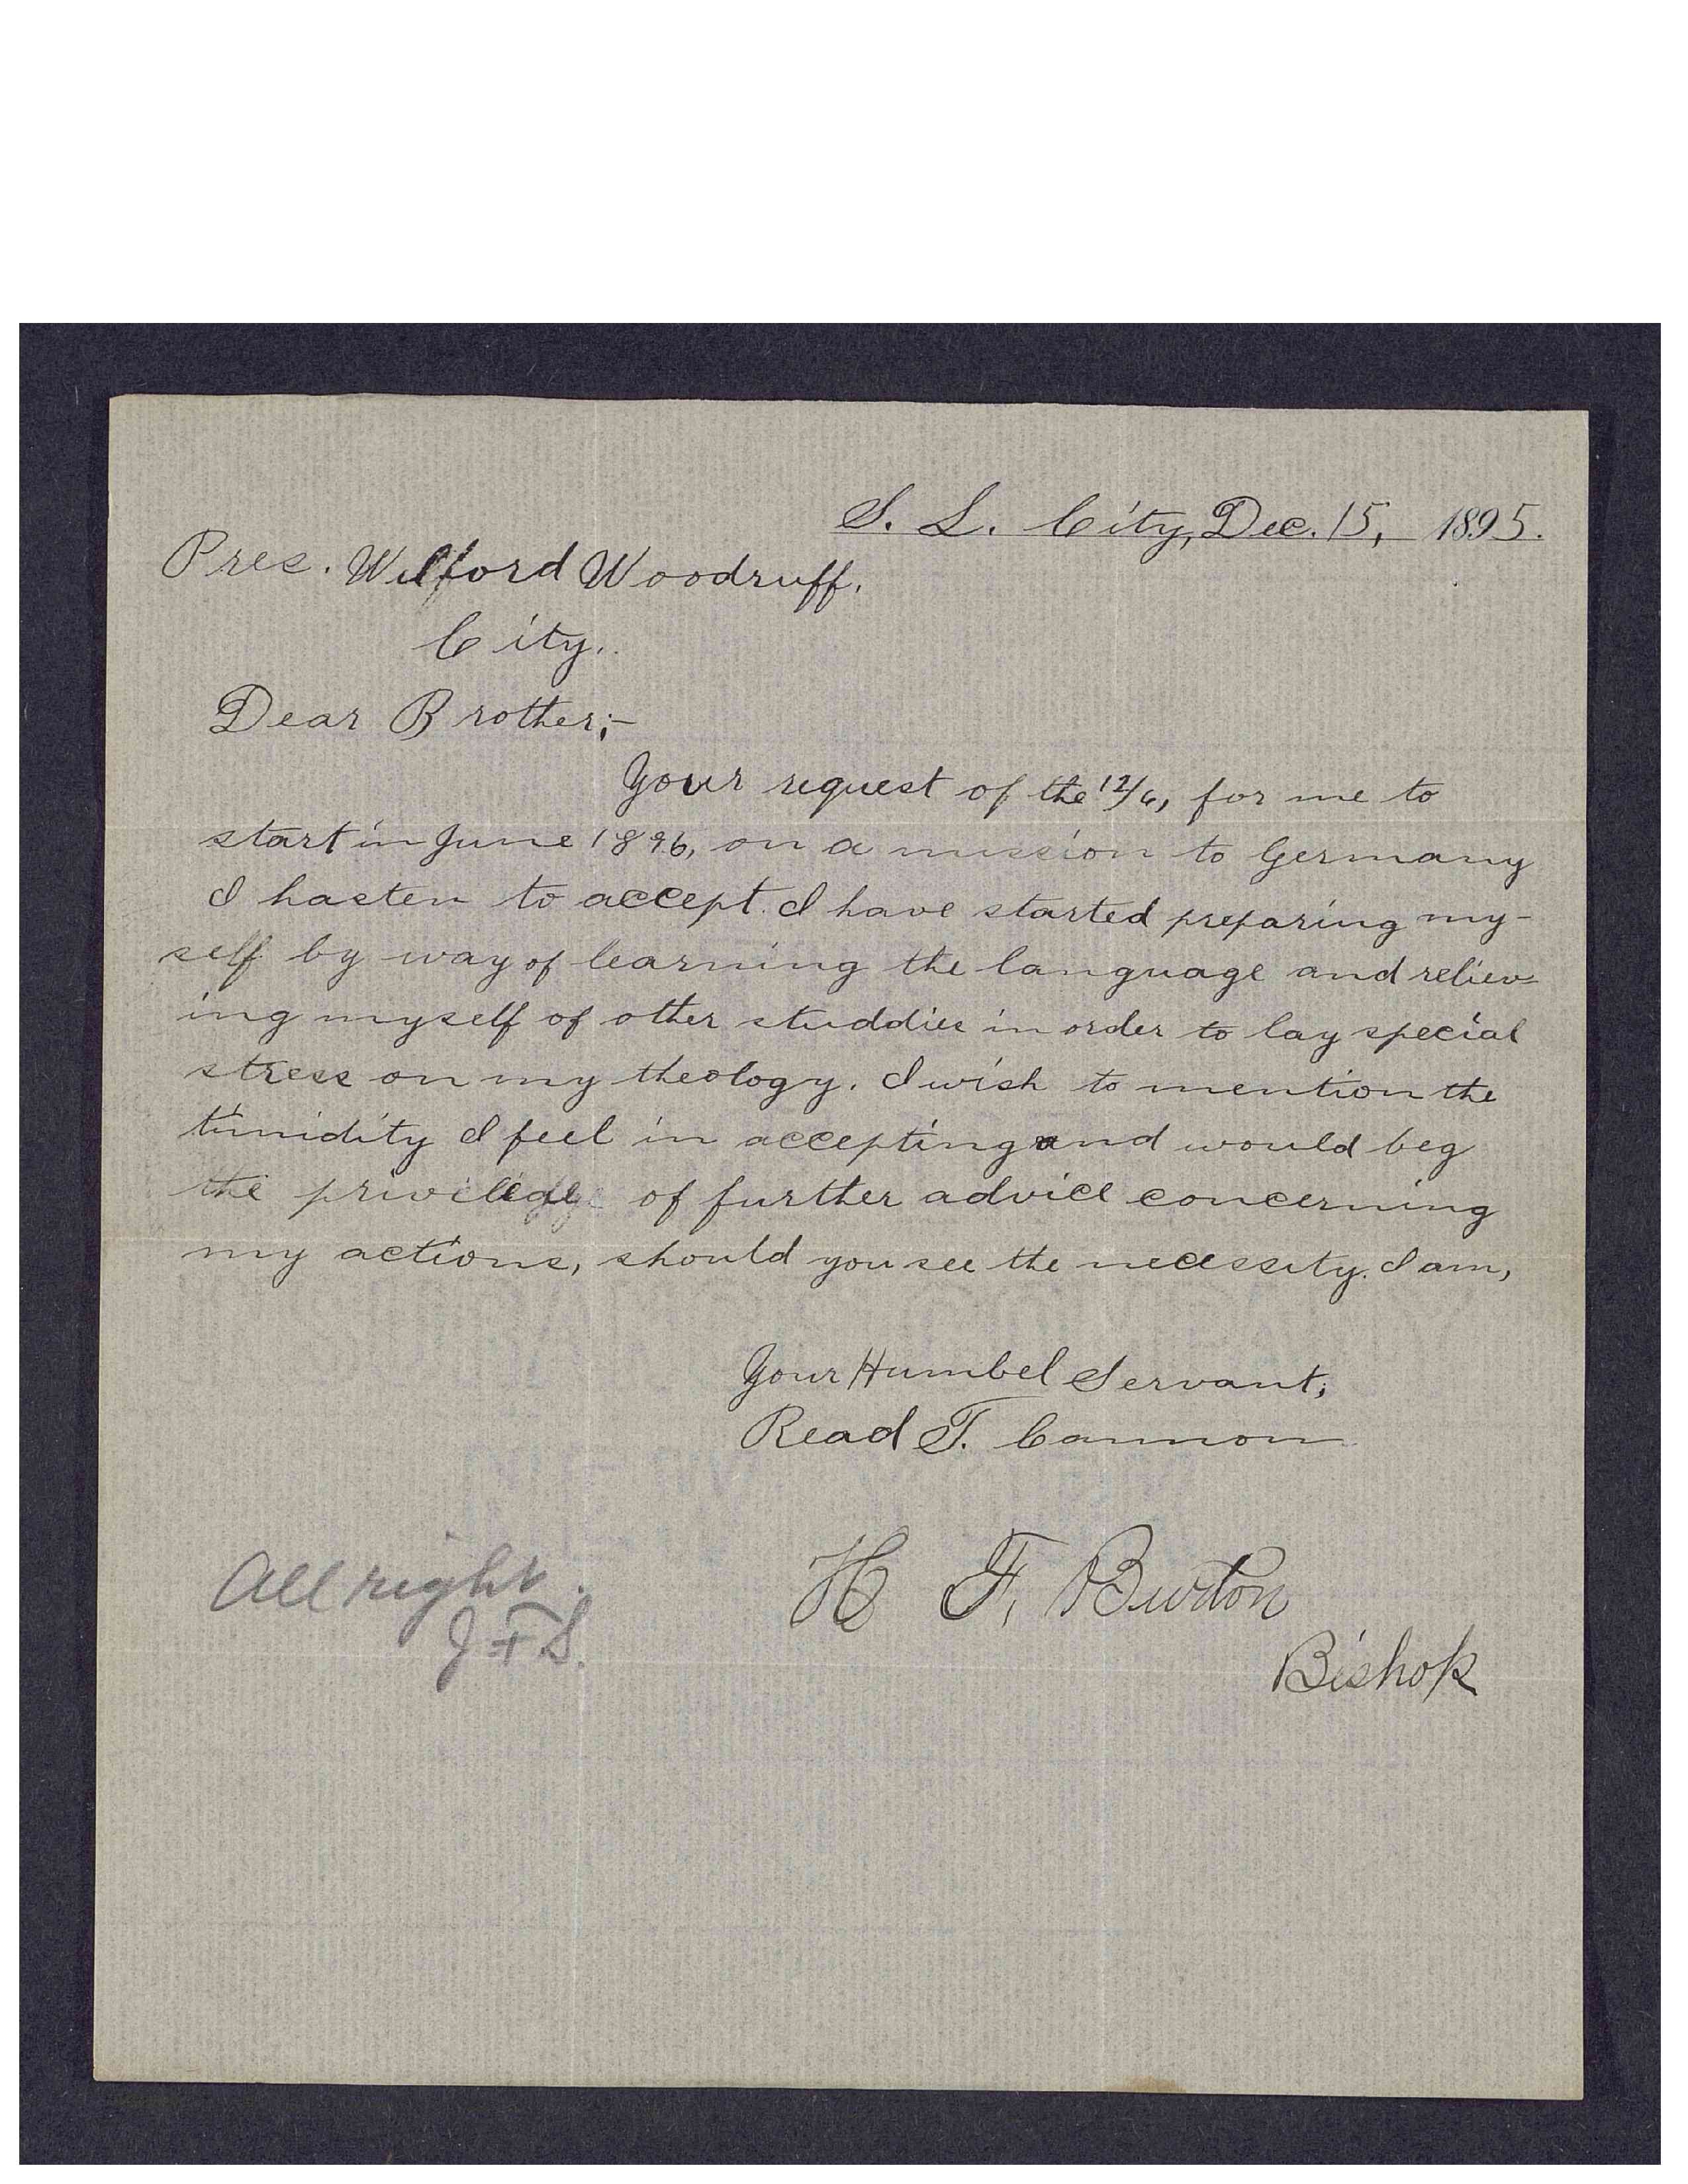 S. L. City, Dec. 15, 1895.
Pres. Wilford Woodruff.
City.
Dear Brother;-
Your request of the 12/6, for me to
start in June 1896, on a mission to Germany
I hasten to accept. I have started preparing my-
self by way of learning the language and reliev=
ing myself of other studdies in order to lay special
stress on my theology. I wish to mention the
timidity I feel in accepting and would beg
the priviledge of further advice concerning
my actions, should you see the necessity. I am,
Your Humbel Servant;
Read T. Cannon
H F. Burton
Bishop
All right.
J F S.